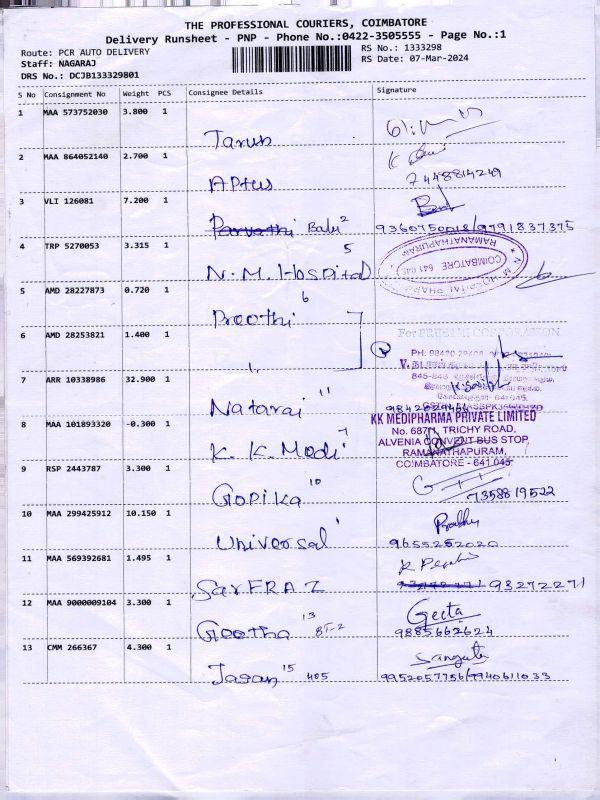 THE PROFESSIONAL COURIERS, COIMBATORE
Delivery Runsheet - PNP - Phone No.:0422-3505555 - Page No.:1
Route: PCR AUTO DELIVERY RS No.: 1333298
Staff: NAGARAJ RS Date: 07-Mar-2024
DRS No.: DCJB133329801
S No Consignment No Weight PCS Consignee Details Signature
1 MAA 573752030 3.800 1
Tarun
2 MAA 864052140 2.700 1
Aptus 7448814249
3 VLI 126081 7.200 1
Parvathi Babi 2 9360750018/9791837375
4 TRP 5270053 3.315 1
N.M. Hospital 5
N M HOSPITAL PHAR
COIMBATORE 641 045
RAMANATHAPURAM
5 AMD 28227873 0.720 1
Preethi 6
6 AMD 28253821 1.400 1
For PREETHI CORPORATION
7 ARR 10338986 32.900 1
Nataraj 11
8 MAA 101893320 -0.300 1
K.K. Medi 7
KK MEDIPHARMA PRIVATE LIMITED
TRICHY ROAD,
ALVENIA CONVENT BUS STOP,
RAMANATHAPURAM,
COIMBATORE - 641 045
9 RSP 2443787 3.300 1
Gopika 10 7358819522
10 MAA 299425912 10.150 1
Universal 9655252020
11 MAA 569392681 1.495 1
SARFRAZ 93272271
12 MAA 9000009104 3.300 1
Geetha 13 8T-2 Geeta
9885662624
13 CMM 266367 4.300 1
Jagan 15 405 Sangeeta
9952057756/9940611033